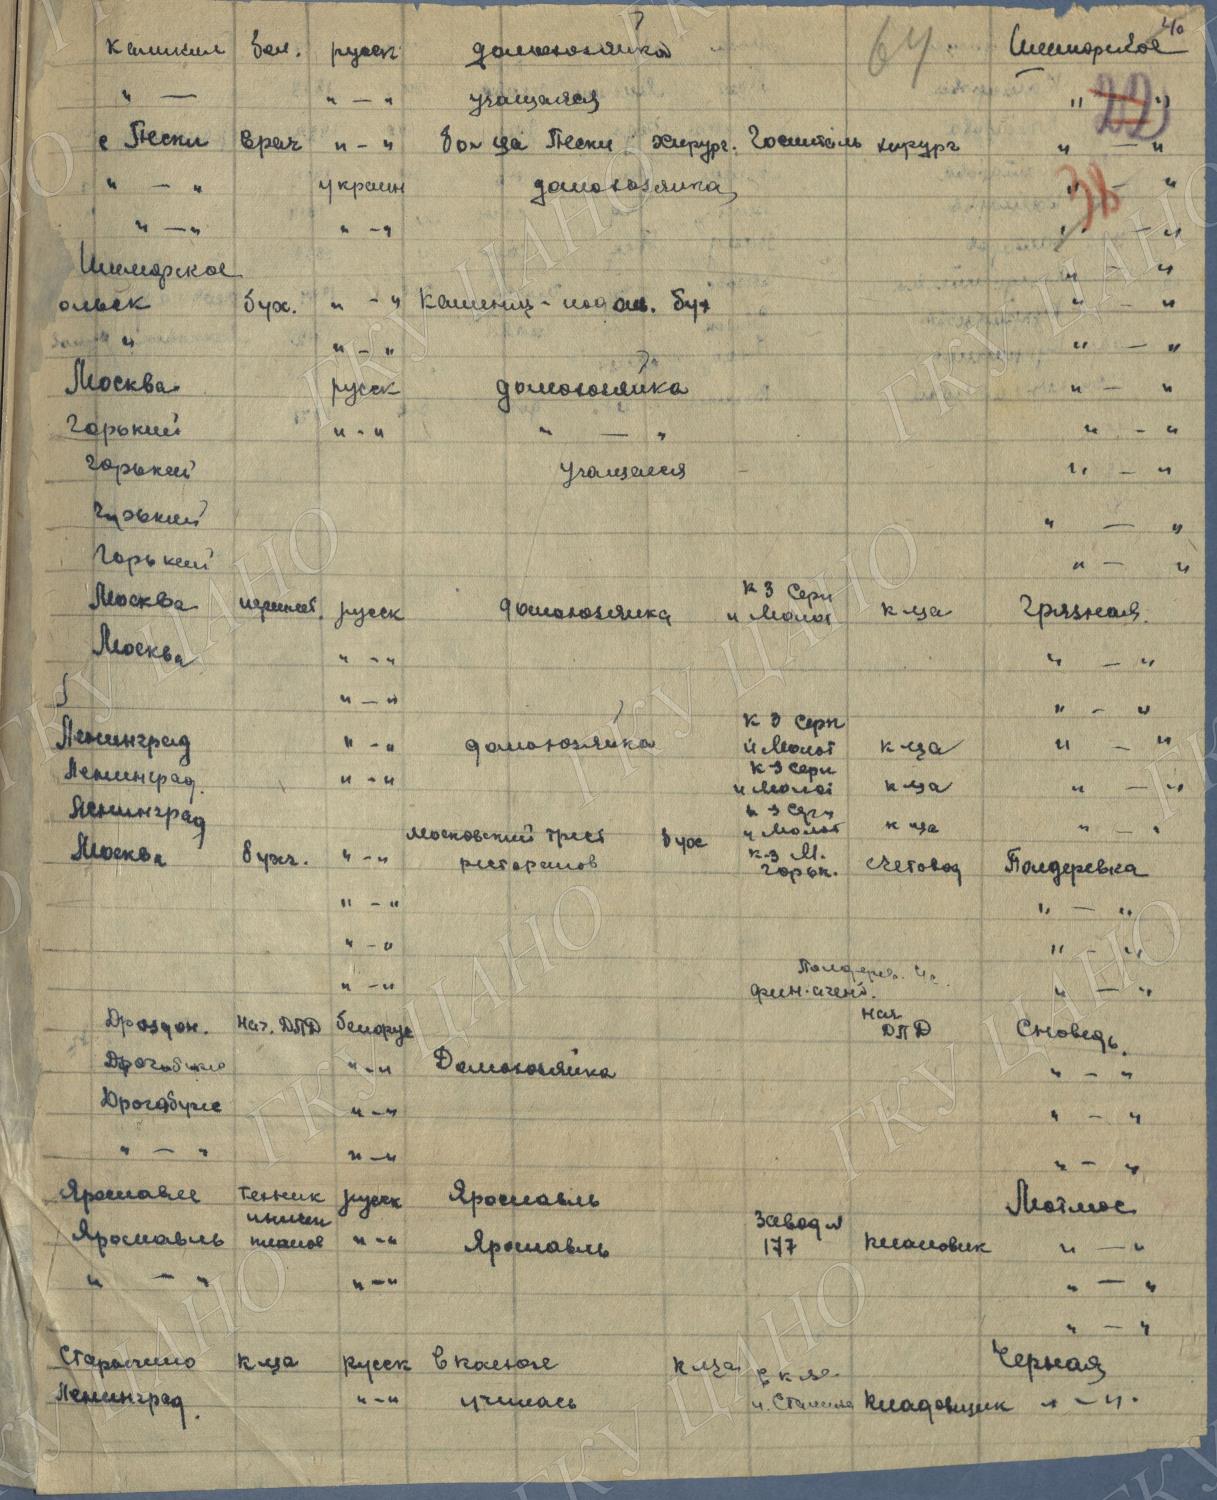 40
64
русск домохозяйка Шиморское
" — " — " учащаяся " 22 "
с Пески врач " — " больца Пески хирург. Госпиталь хирург " — "
" — " украин домохозяйка " — "
38
" — " " — " " — "
Шиморское " — "
бух. " — " бух " — "
" " — " " — "
Москва русск домохозяйка " — "
Горький " — " " — " " — "
Горький учащаяся " — "
Горький " — "
Горький " — "
Москва русск домохозяйка к-з Серп и Молот к-ца Грязная.
Москва " — " " — "
" — " " — "
Ленинград " — " домохозяйка к-з Серп и Молот к-ца " — "
Ленинград. " — " к-з Серп и Молот к-ца " — "
Ленинград к-з Серп и Молот к-ца " — "
Москва бухг. " — " Московский трест ресторанов бухг к-з М. Горьк. счетовод Полдеревка
" — " " — "
" — " " — "
" — " фин. агент. " — "
нач. ДПД белорус нач ДПД Сноведь.
" — " Домохозяйка " — "
Дрогобуже " — " " — "
" — " " — " " — "
Ярославль техник русск Ярославль Мотмос
Ярославль " — " Ярославль завод № 177 плановик " — "
" — " " — " " — "
" — "
к-ца русск в колхозе к-ца Черная
Ленинград. " — " училась и. Сталина кладовщик " — "
ГКУ ЦАНО